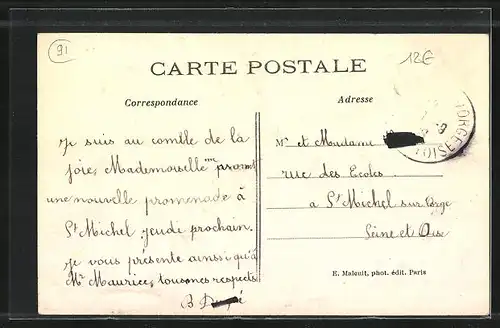 91
12€
CARTE POSTALE
Correspondance
Adresse
Je suis au comble de la
joie, Mademoiselle me promet
une nouvelle promenade à
St Michel jeudi prochain.
Je vous présente ainsi qu'à
Mr Maurice, tous mes respects
B
Mr et Madame
rue des Ecoles
a St Michel sur Orge
Seine et Oise
E. Maleuit, phot. édit. Paris